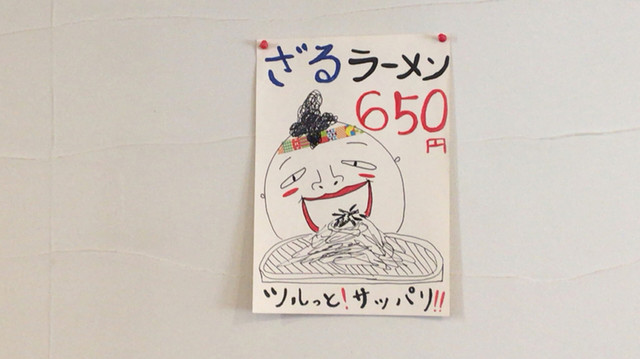 ざるラーメン
650
円
ツルっと!サッパリ!!